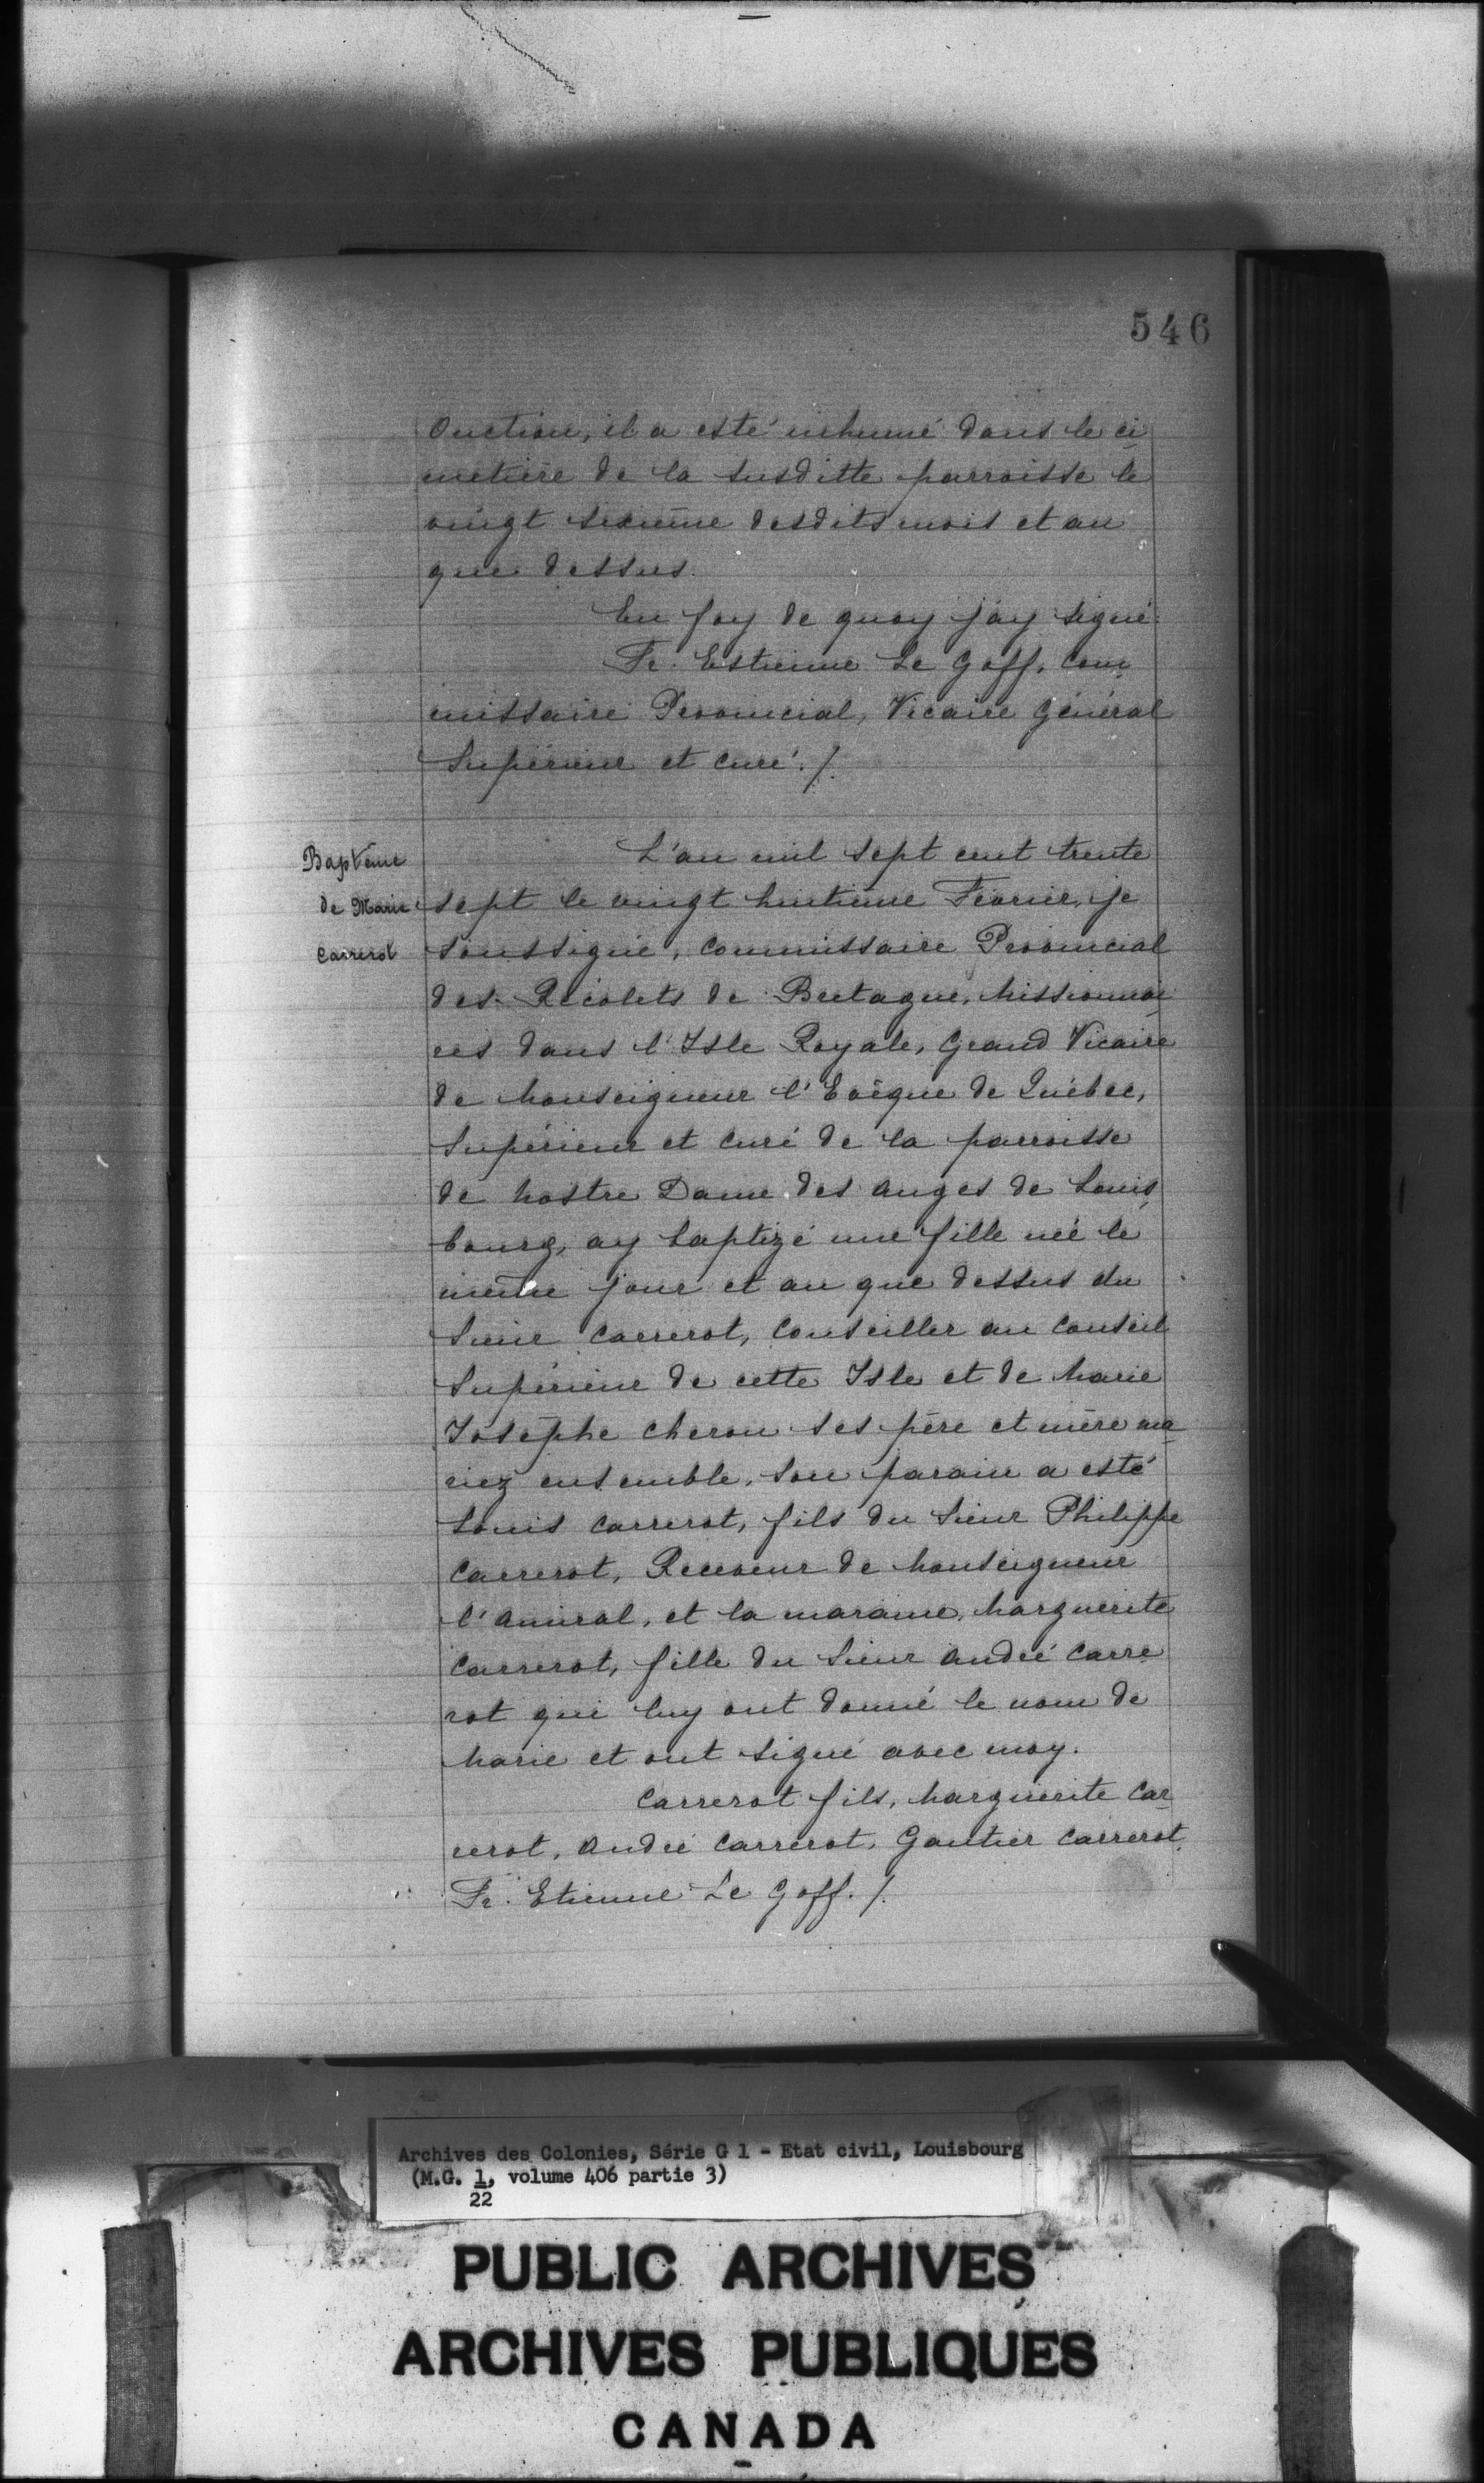 546
Onction, il a esté inhumé dans le ci
metière de la susditte parroisse le
vingt sixième desdits mois et an
que dessus.
En foy de quoy j'ay signé.
Fr. Estienne Le Goff, com
missaire Provincial, Vicaire Général
Supérieur et curé./.
Baptême
de Marie
Carrerot
L'an mil sept cent trente
sept le vingt huitième Février, je
soussigné, commissaire Provincial
des Récolets de Bretagne, Missionnai
res dans l'Isle Royale, Grand Vicaire
de Monseigneur l'Evêque de Québec,
Supérieur et curé de la parroisse
de Nostre Dame des anges de Louis
bourg, ay baptizé une fille née le
même jour et an que dessus du
Sieur Carrerot, Conseiller au Conseil
Supérieur de cette Isle et de Marie
Josephe Cheron ses père et mère ma
riez ensemble, son parain a esté
Louis Carrerot, fils du Sieur Philippe
Carrerot, Receveur de Monseigneur
l'Amiral, et la maraine, Marguerite
Carrerot, fille du Sieur André Carre
rot qui luy ont donné le nom de
Marie et ont signé avec moy.
Carrerot fils, Marguerite Car
rerot, André Carrerot, Gautier Carrerot
Fr. Etienne Le Goff./.
Archives des Colonies, Série G 1 - Etat civil, Louisbourg
(M.G. 1, volume 406 partie 3)
22
PUBLIC ARCHIVES
ARCHIVES PUBLIQUES
CANADA